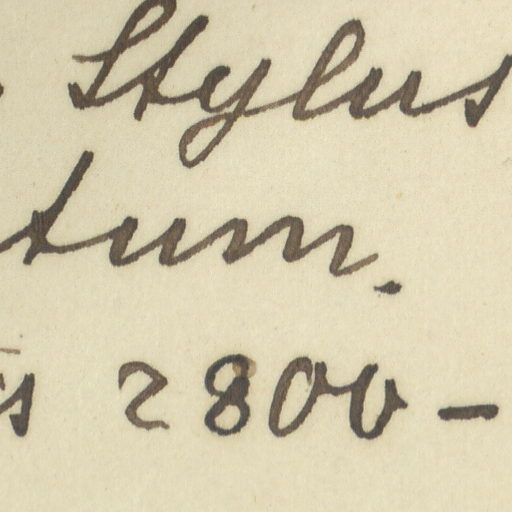 Stylus
tum.
s 2800-